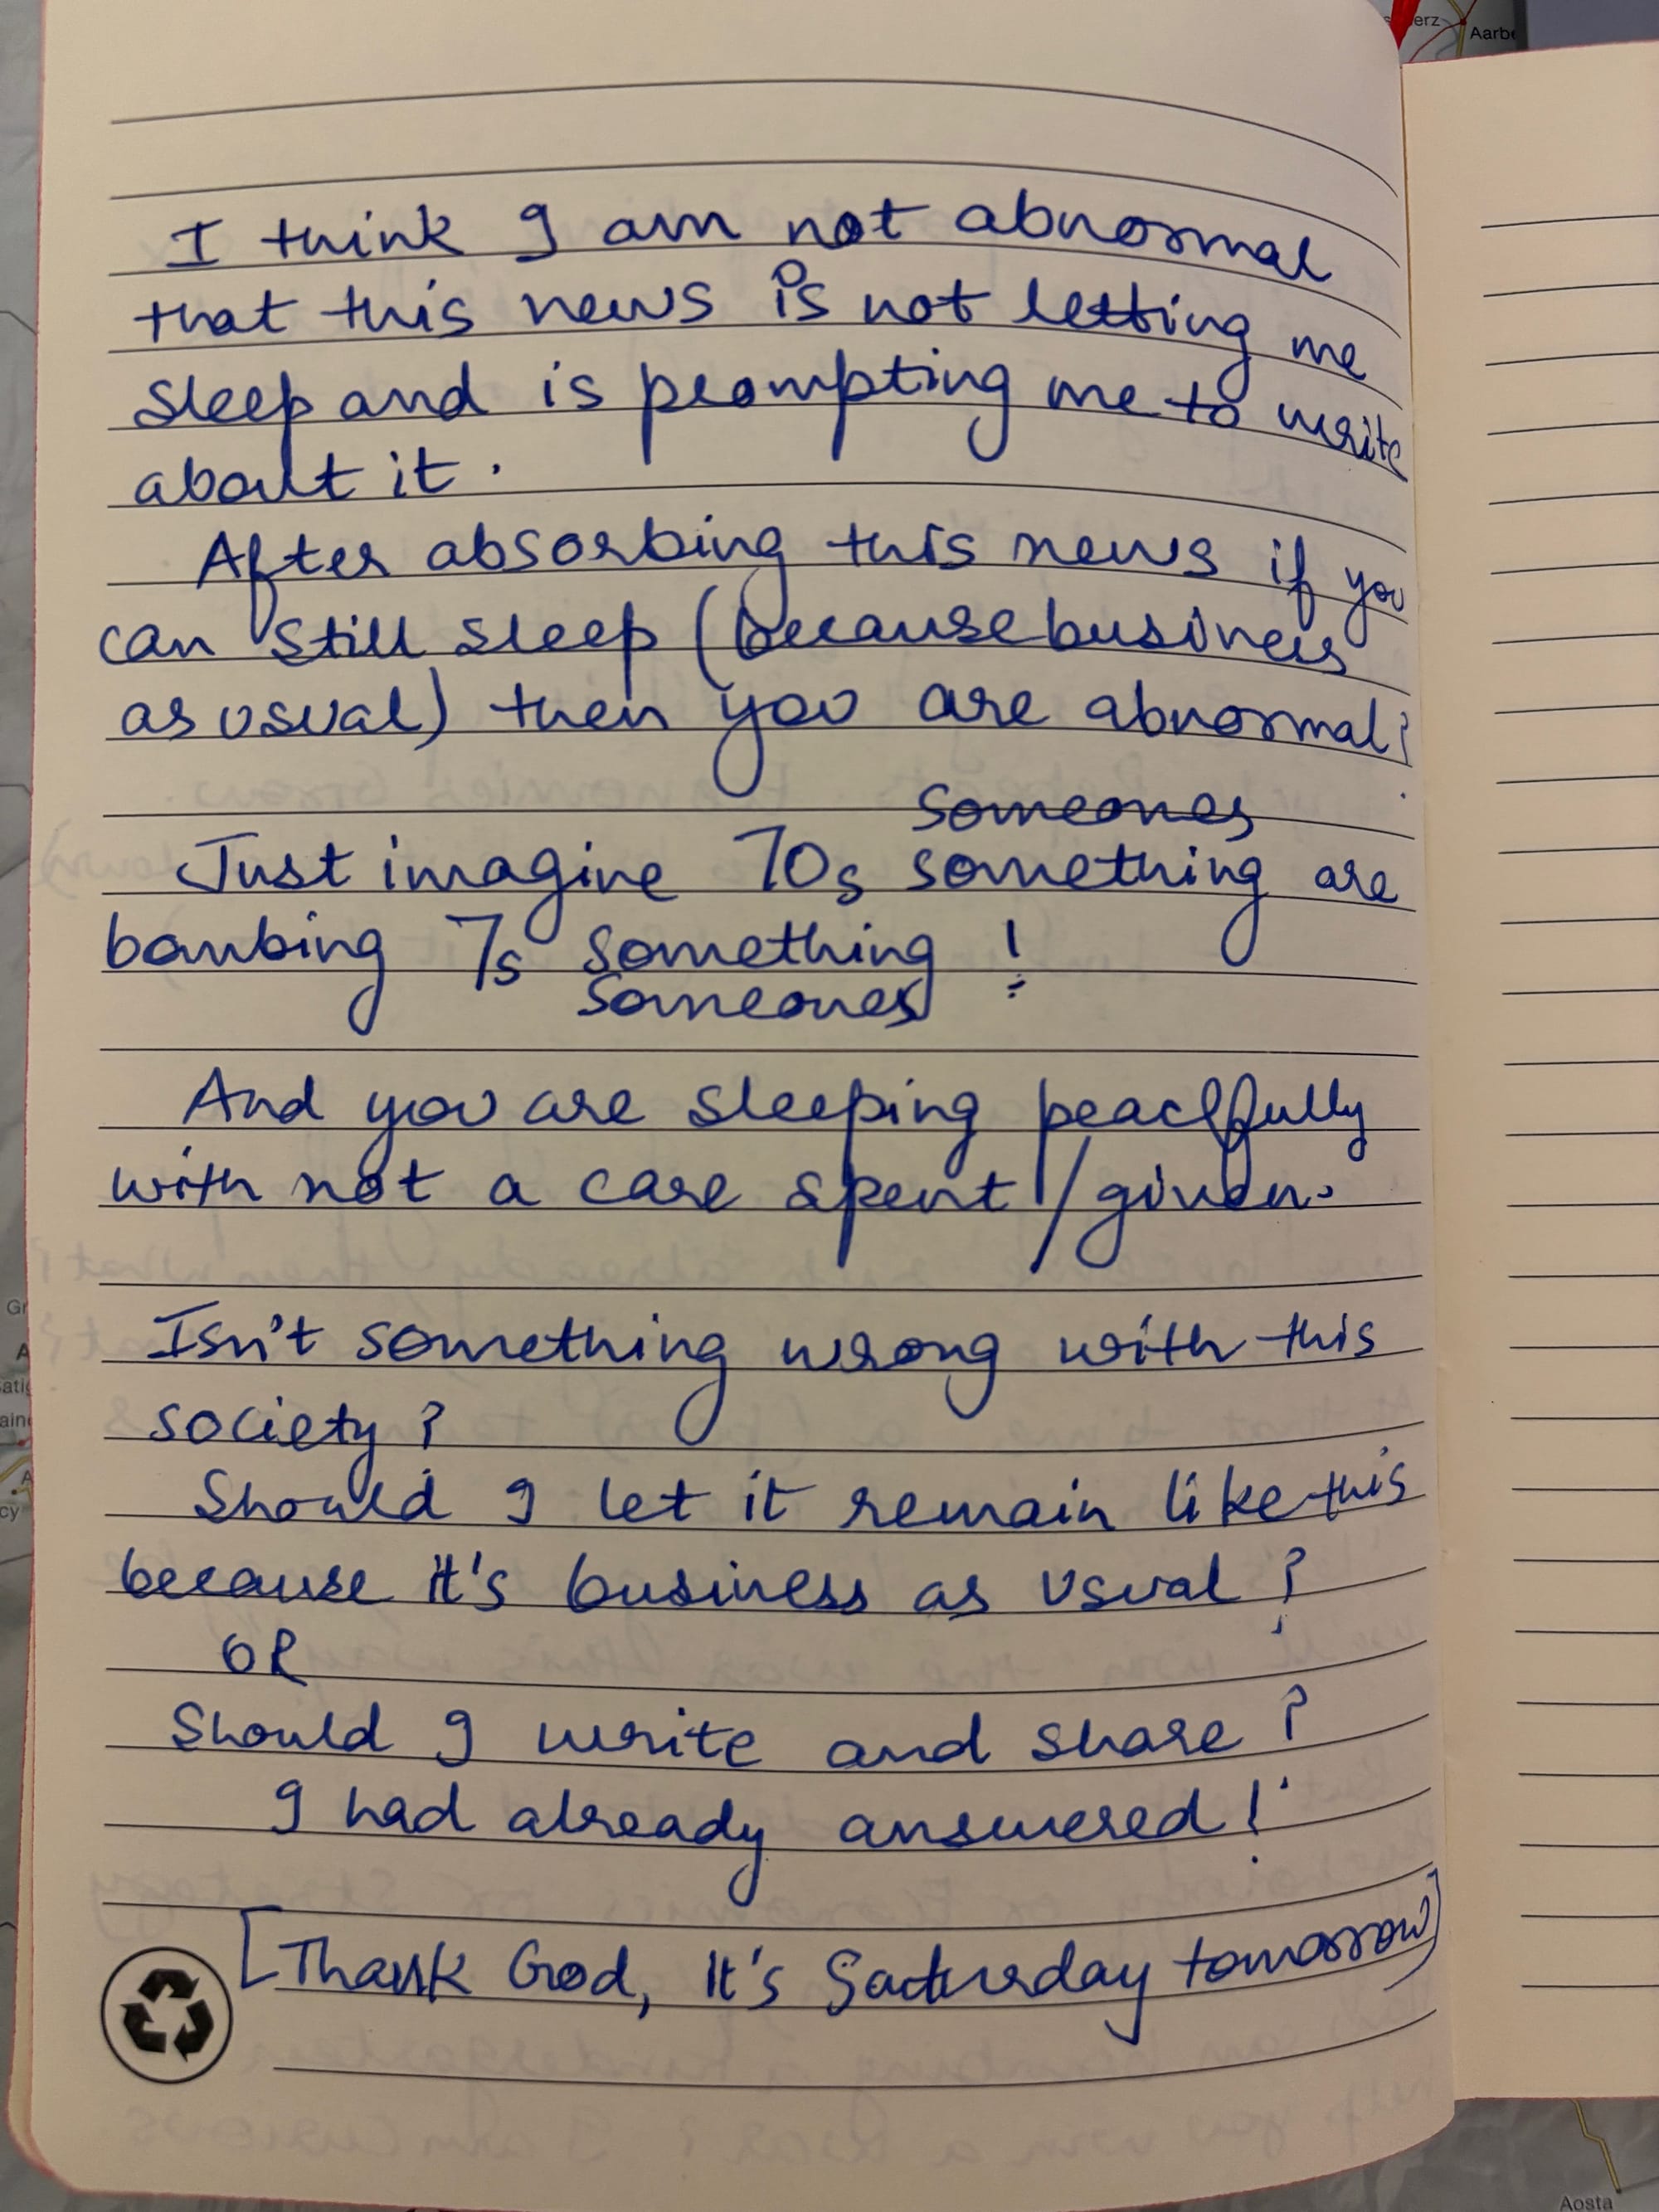 I think I am not abnormal
that this news is not letting me
sleep and is prompting me to write
about it.
After absorbing this news if you
can still sleep (because business
as usual) then you are abnormal?
someones
Just imagine 70s something are
bombing 7s something!
someones
And you are sleeping peacefully
with not a care spent/given.
Isn't something wrong with this
society?
Should I let it remain like this
because it's business as usual?
OR
Should I write and share?
I had already answered!
[Thank God, It's Saturday tomorrow]
Aosta